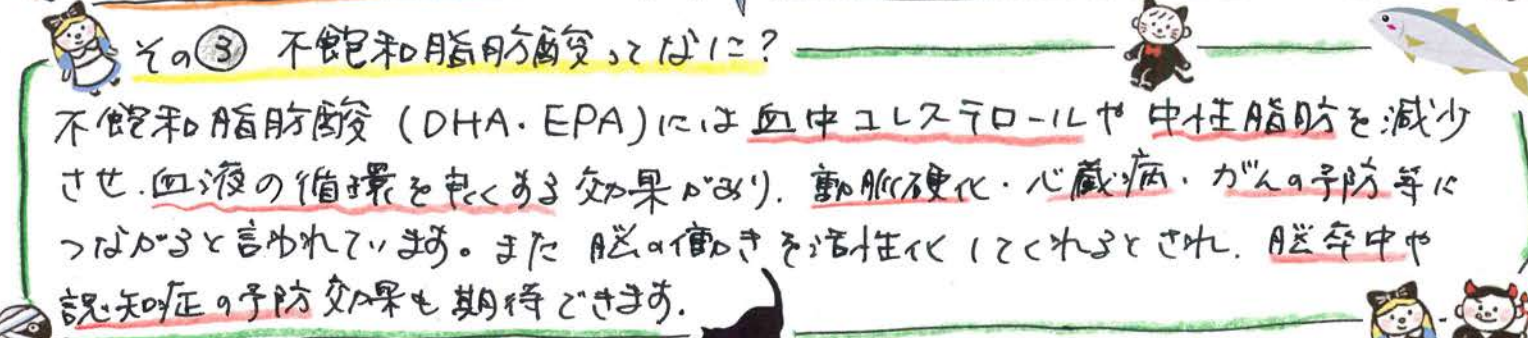 その③ 不飽和脂肪酸ってなに?
不飽和脂肪酸(DHA・EPA)には血中コレステロールや中性脂肪を減少
させ、血液の循環を良くする効果があり、動脈硬化・心臓病・がんの予防等に
つながると言われています。また脳の働きを活性化してくれるとされ、脳卒中や
認知症の予防効果も期待できます。